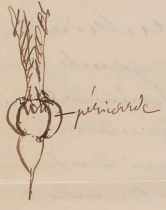 péricarde